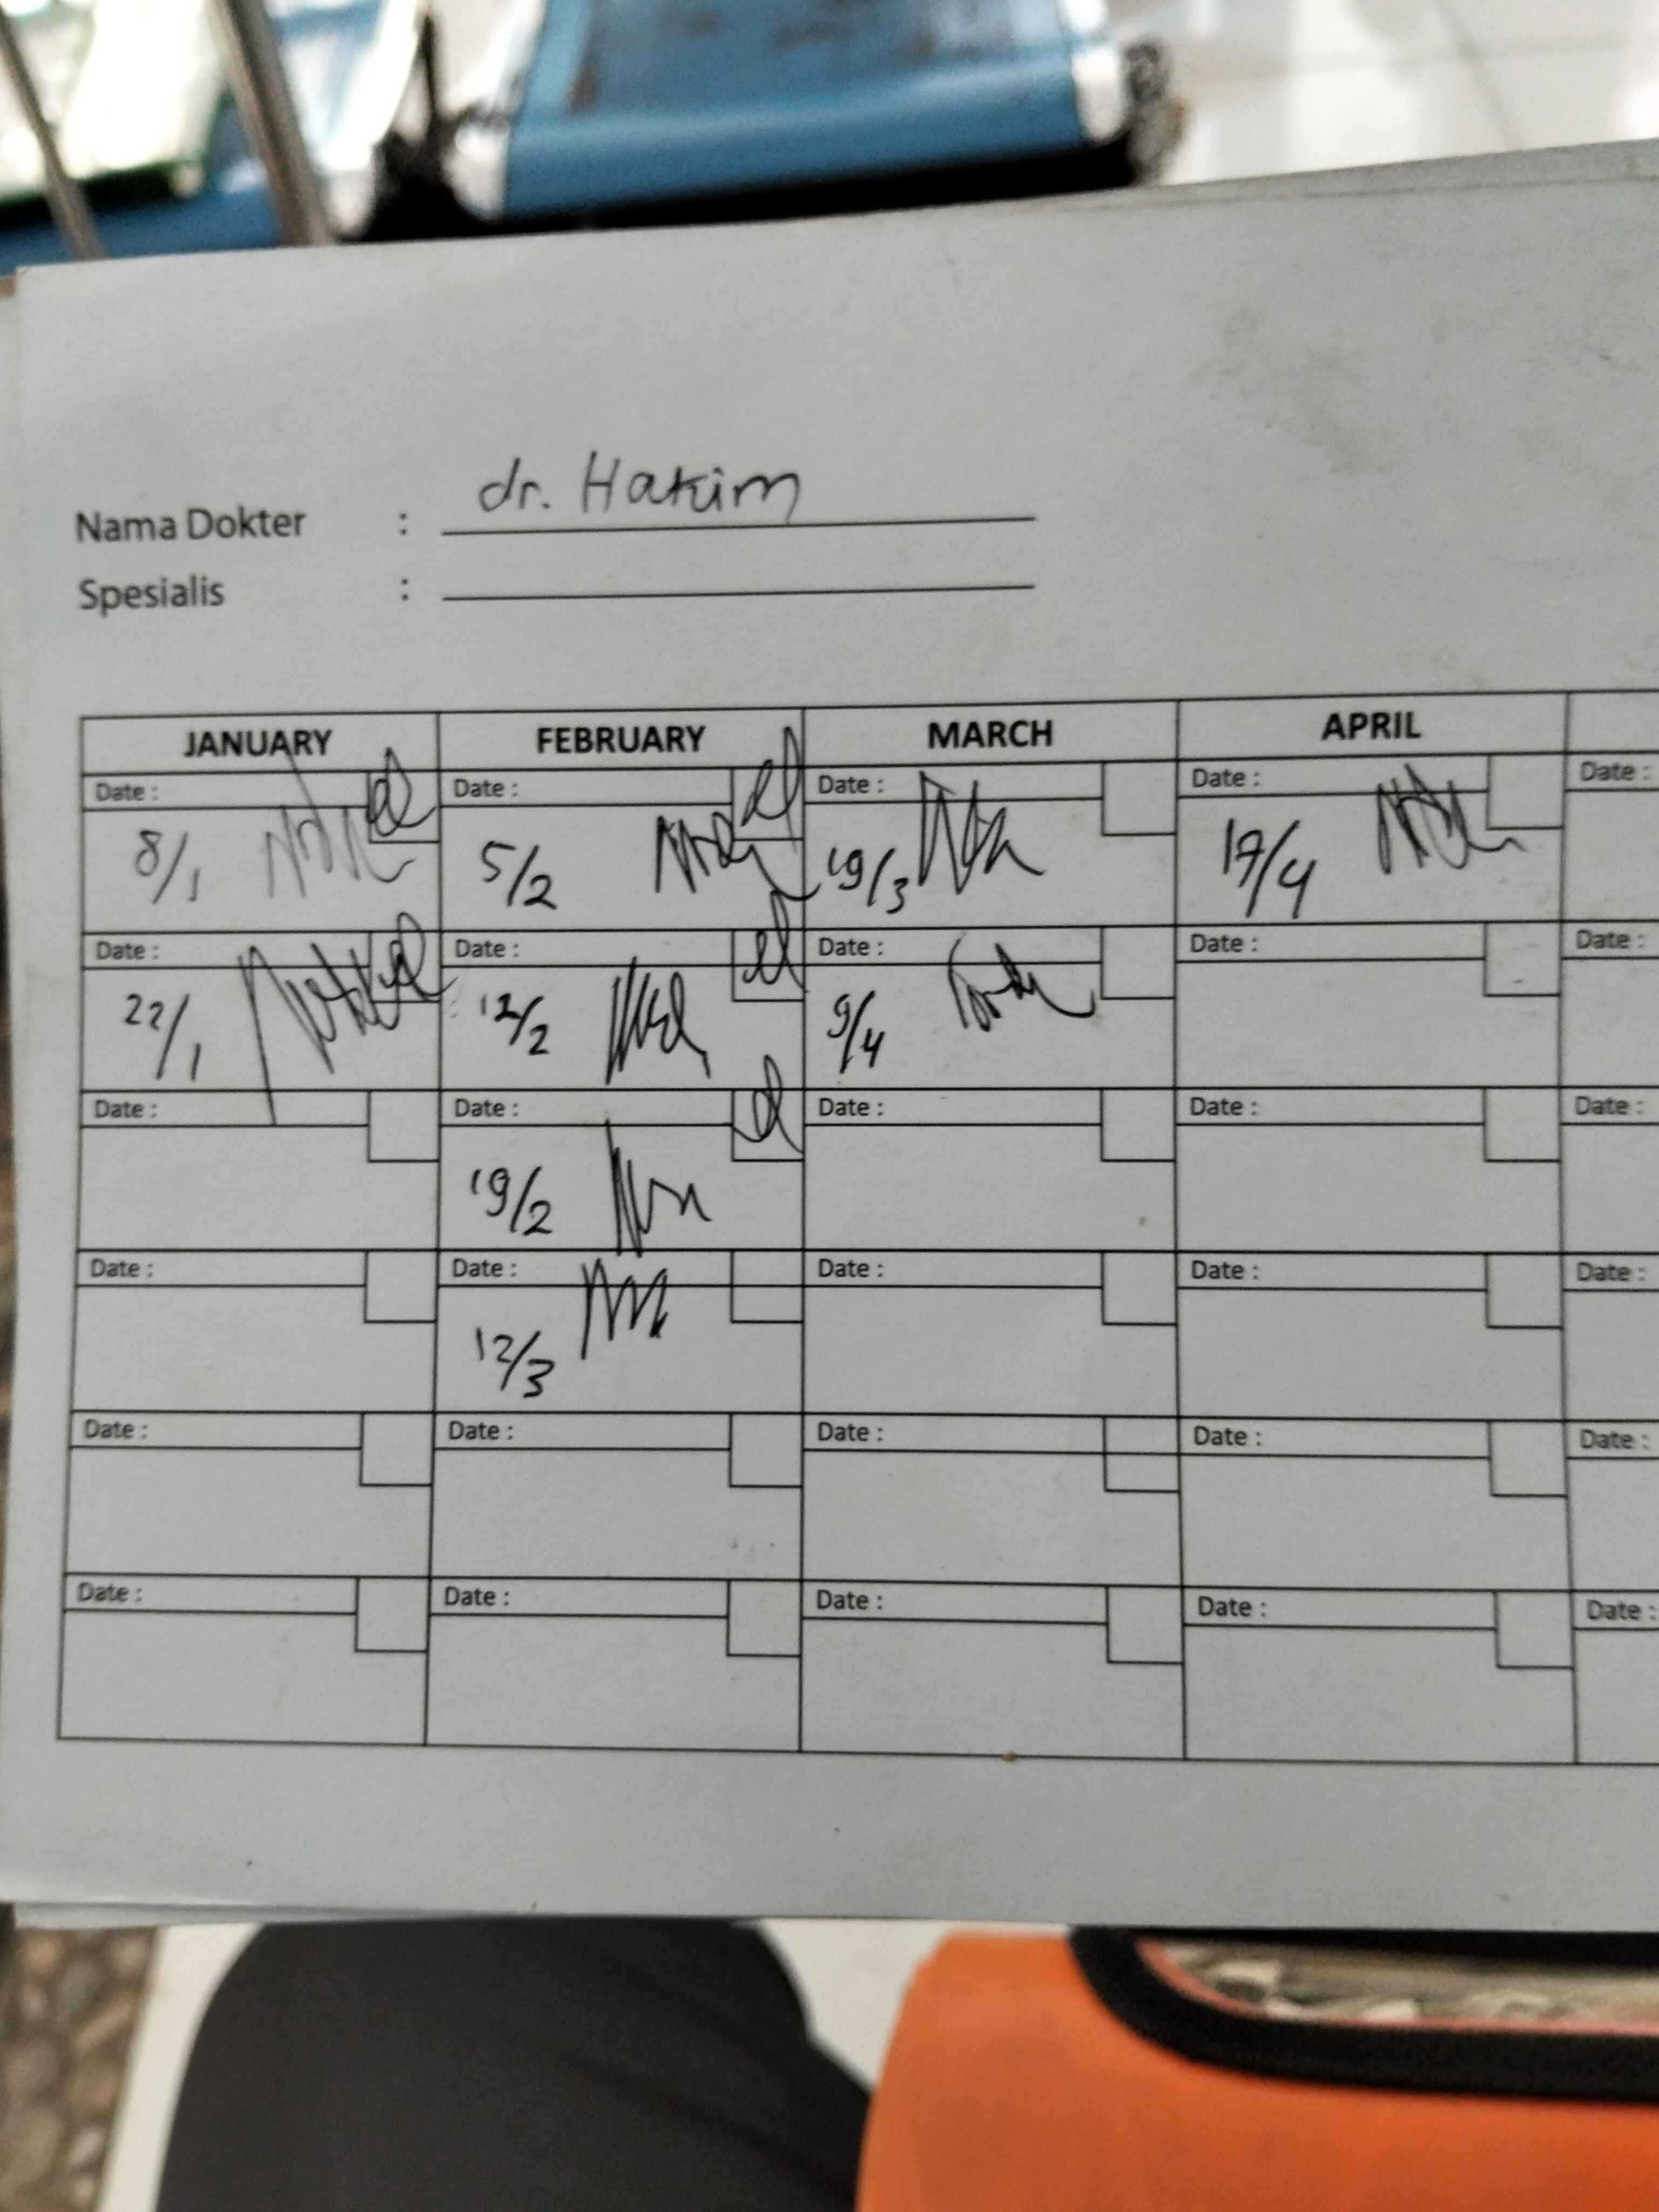 Nama Dokter : dr. Hakim
Spesialis :
JANUARY FEBRUARY MARCH APRIL
Date : Date : Date : Date : Date :
8/1 5/2 19/3 17/4
Date : Date : Date : Date : Date :
22/1 12/2 9/4
Date : Date : Date : Date : Date :
19/2
Date : Date : Date : Date : Date :
12/3
Date : Date : Date : Date : Date :
Date : Date : Date : Date : Date :